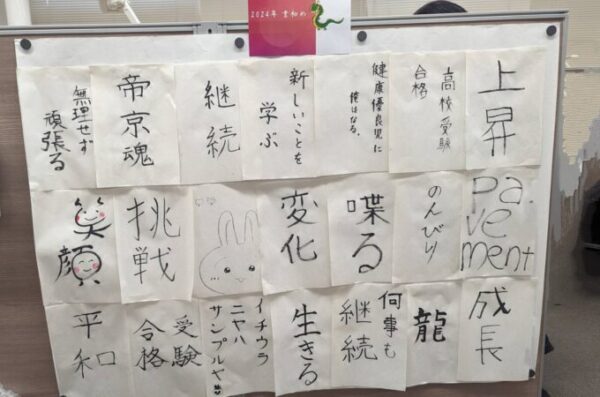 2024年 書初め
上昇
高校受験
合格
健康優良児に
俺はなる。
新しいことを
学ぶ
継続
帝京魂
無理せず
頑張る
pa.
ve
ment
のんびり
喋る
変化
挑戦
笑
顔
成長
龍
何事も
継続
生きる
イチウラ
ニヤハ
サンプルヤ
受験
合格
平和